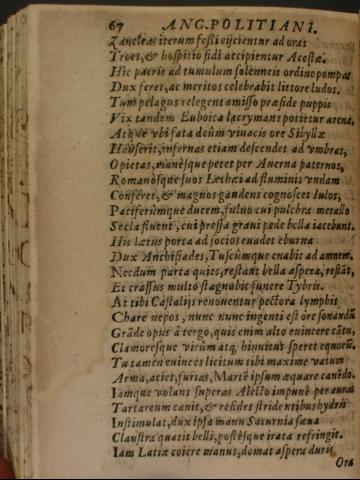 67 ANG. POLITIANI.
Zancleas iterum feßi eijcientur ad oras
Troes, & hospitio fidi accipientur Acestæ.
Hic patris ad tumulum solenneis ordine pompas
Dux feret, ac meritos celebrabit littore ludos.
Tum pelagus relegens amisso præside puppis
Vix tandem Euboica lacrymans potietur arena.
Atque vbi fata deûm viuacis ore Sibyllæ
Hauserit, infernas etiam descendet ad vmbras,
O pietas, manésque petet per Auerna paternos,
Romanósque suos Lethæi ad fluminis vndam
Conseret, & magnos gaudens cognoscet Iulos,
Paciferúmque ducem, fuluo cui pulchra metallo
Secla fluent, cui pressa graui pede bella iacebunt.
His lætus porta ad socios euadet eburna
Dux Anchisiades, Tuscúmque enabit ad amnem.
Necdum parta quies, restant bella aspera, restāt,
Et crassus multo stagnabit funere Tybris.
At tibi Castalijs renouentur pectora lymphis
Chare nepos, nunc nunc ingenti est ore sonandū
Grāde opus à tergo, quis enim alto euincere cātu,
Clamoresque virûm atq; hinnitus speret equorū.
Tu tamen euinces licitum tibi maxime vatum
Arma, acies, furias, Martē ipsum æquare canēdo.
Iamque volans superas Alecto impunè per auras
Tartareum canit, & resides stridentibus hydris
Instimulat, dux ipsa manu Saturnia sæua
Claustra quatit belli, postésque irata refringit.
Iam Latiæ coiere manus, domat aspera duris
Ora